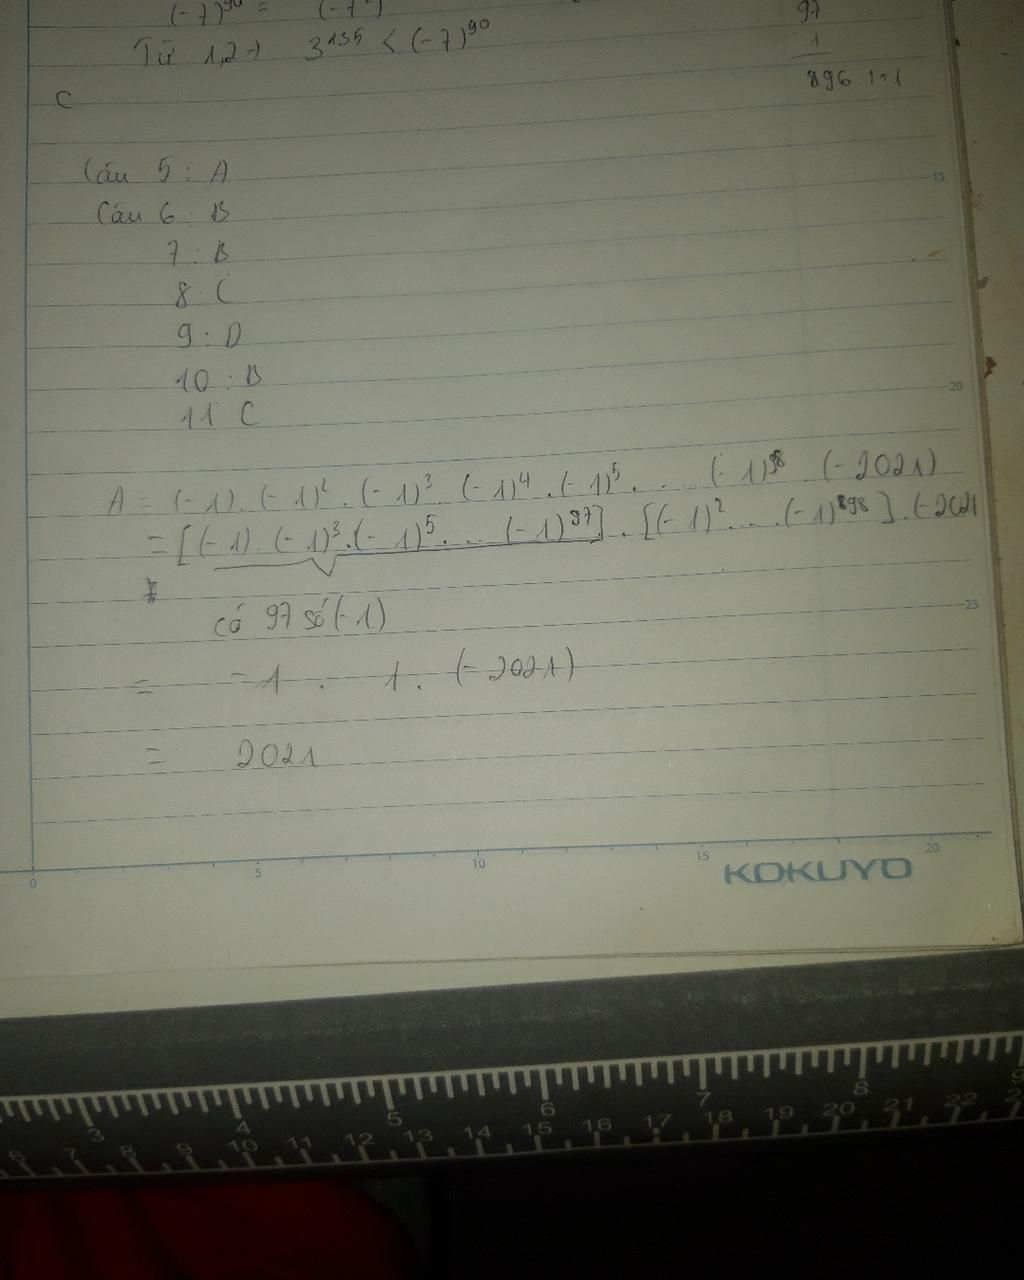 (-7)⁹⁰ = (-7²)
97
Từ 1,2 → 3¹³⁵ < (-7)⁹⁰
1
896.1+1
C
Câu 5 : A
Câu 6 : B
7 : B
8 C
9 : D
10 : B
11 C
A = (-1) . (-1)² . (-1)³ . (-1)⁴ . (-1)⁵ . ... (-1)⁹⁸ (-2021)
= [(-1) . (-1)³ . (-1)⁵ ... (-1)⁹⁷] . [(-1)² ... (-1)⁸⁹⁸] . (-2021
có 97 số (-1)
= -1 . 1 . (-2021)
= 2021
0 5 10 15 20
15
20
25
KOKUYO
3 4 5 6 7 8 9
6 7 8 9 10 11 12 13 14 15 16 17 18 19 20 21 22